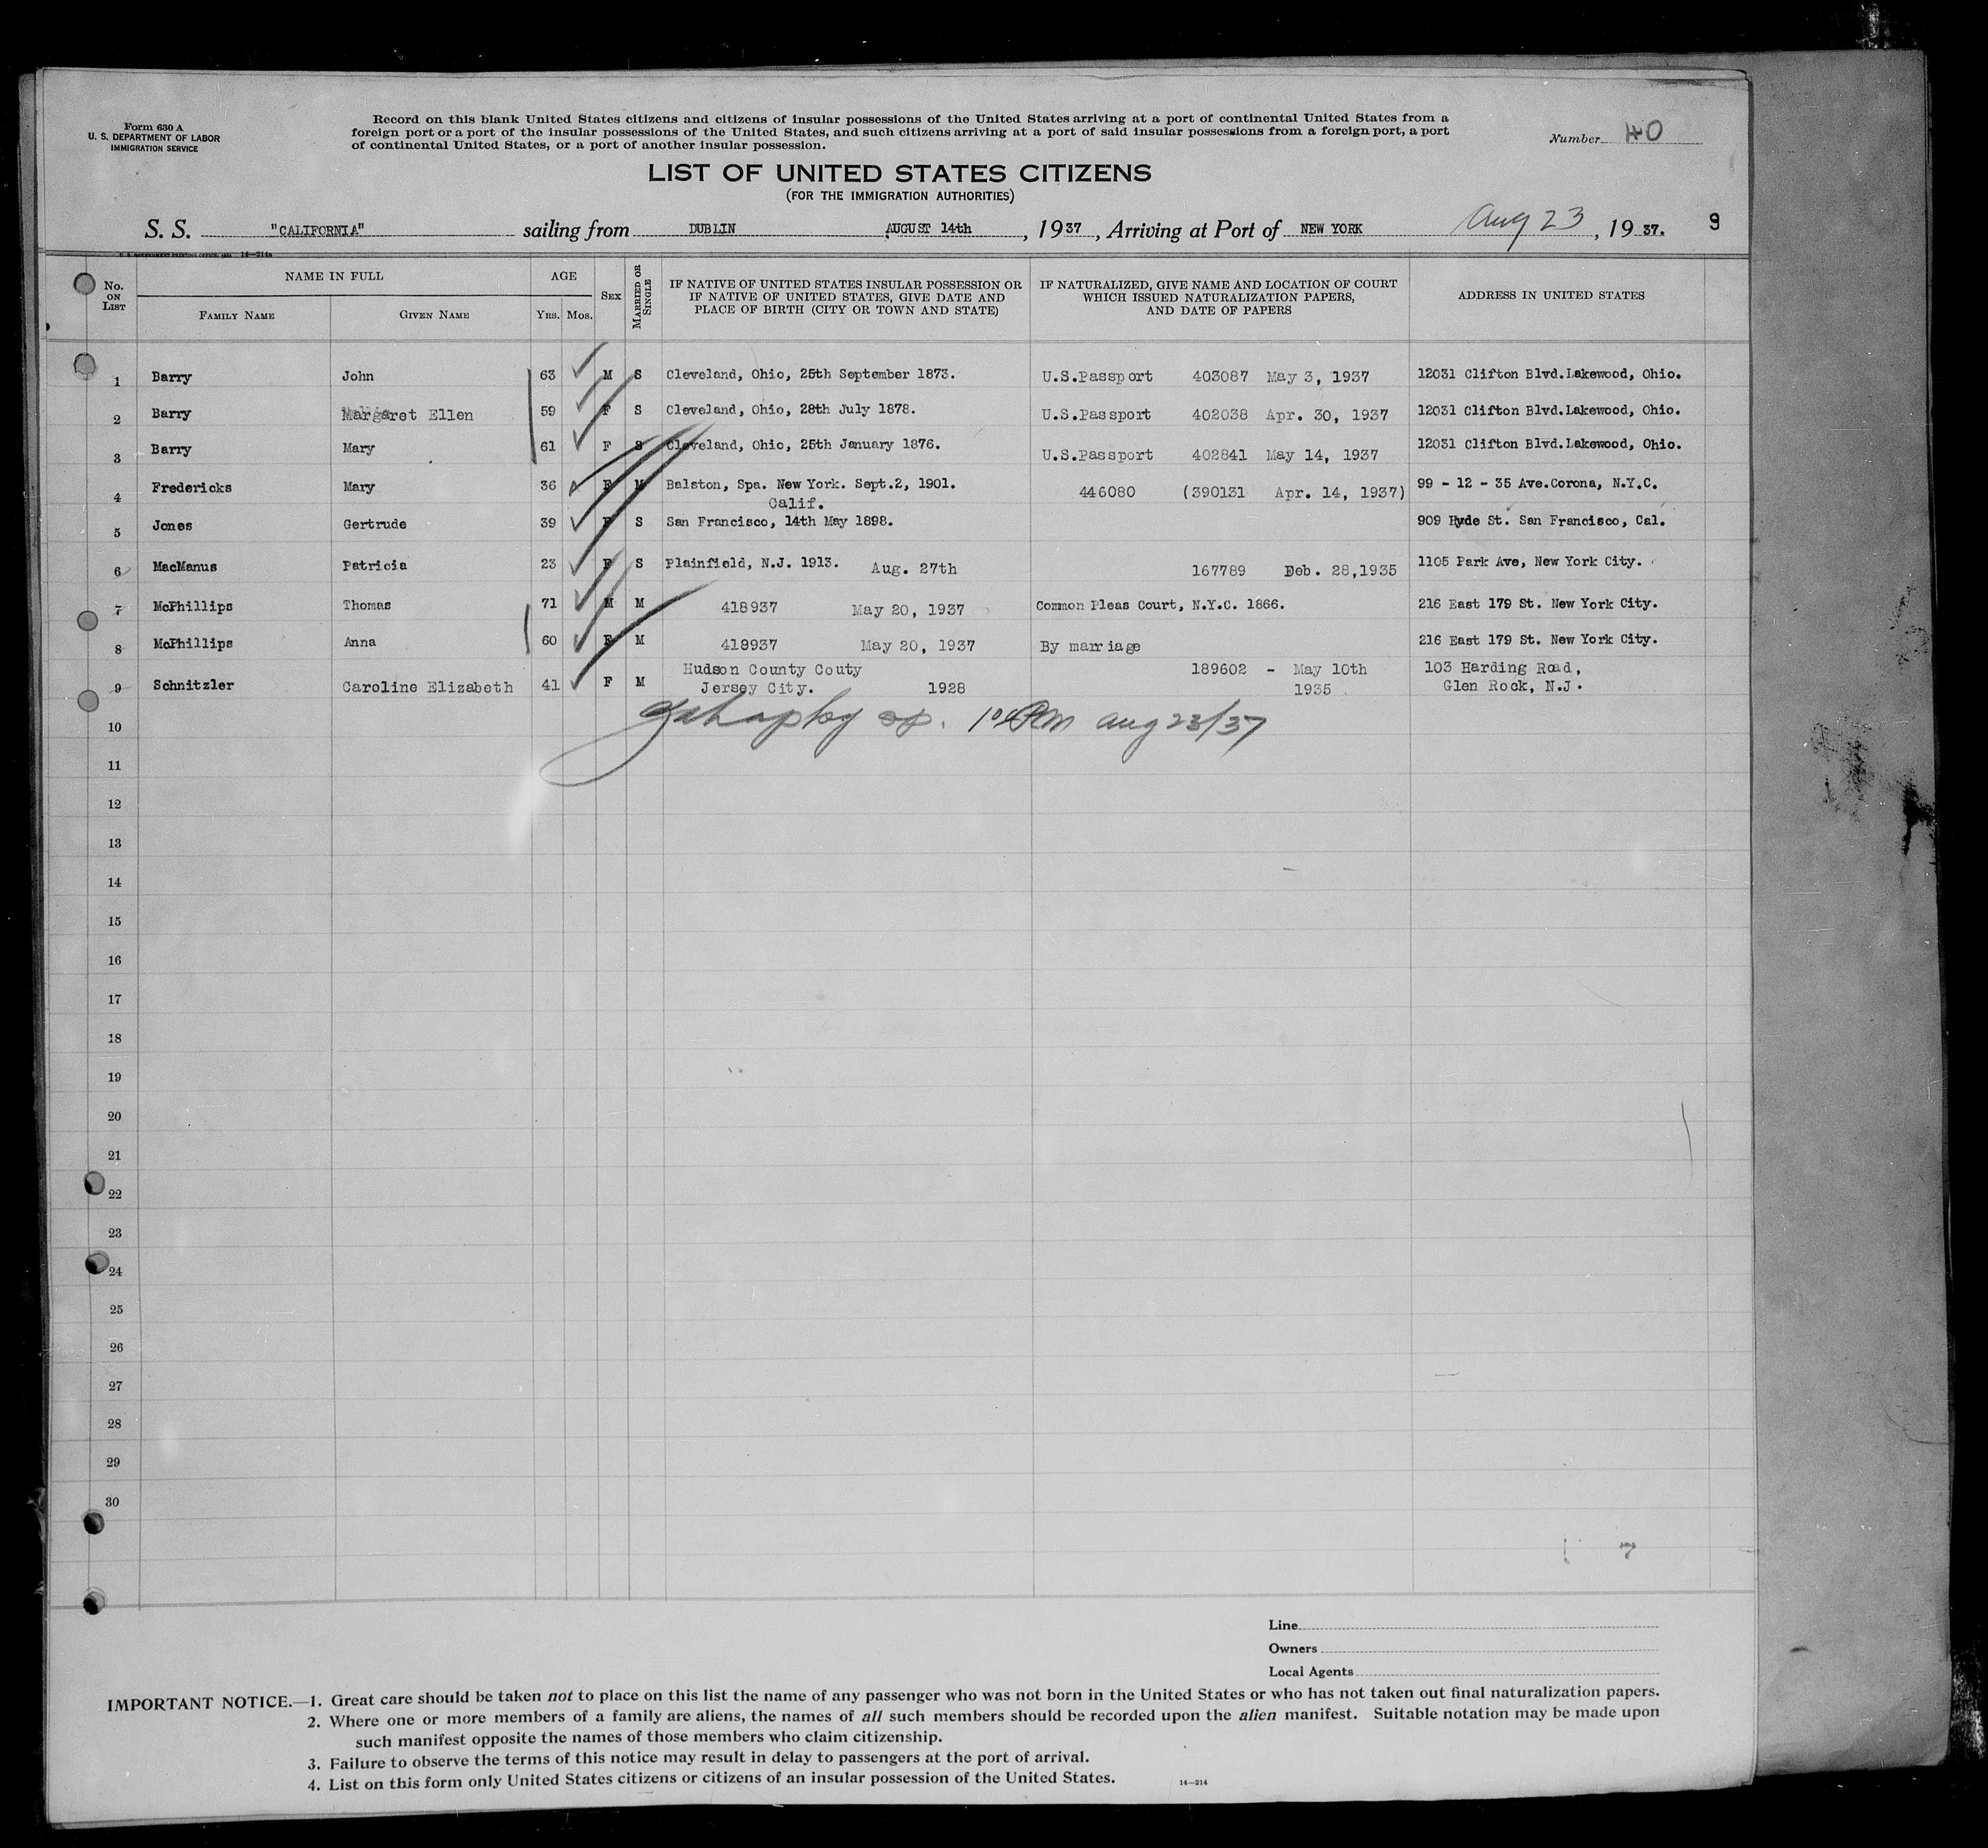 Form 630 A
U. S. DEPARTMENT OF LABOR
IMMIGRATION SERVICE
Record on this blank United States citizens and citizens of insular possessions of the United States arriving at a port of continental United States from a
foreign port or a port of the insular possessions of the United States, and such citizens arriving at a port of said insular possessions from a foreign port, a port
of continental United States, or a port of another insular possession.
Number 40
LIST OF UNITED STATES CITIZENS
(FOR THE IMMIGRATION AUTHORITIES)
S. S. "CALIFORNIA" sailing from DUBLIN AUGUST 14th, 1937, Arriving at Port of NEW YORK Aug 23, 1937. 9
14—214a
No. ON LIST
NAME IN FULL
FAMILY NAME
GIVEN NAME
AGE
YRS. MOS.
SEX
MARRIED OR SINGLE
IF NATIVE OF UNITED STATES INSULAR POSSESSION OR
IF NATIVE OF UNITED STATES, GIVE DATE AND
PLACE OF BIRTH (CITY OR TOWN AND STATE)
IF NATURALIZED, GIVE NAME AND LOCATION OF COURT
WHICH ISSUED NATURALIZATION PAPERS,
AND DATE OF PAPERS
ADDRESS IN UNITED STATES
1 Barry John 63 M S Cleveland, Ohio, 25th September 1873. U.S.Passport 403087 May 3, 1937 12031 Clifton Blvd.Lakewood, Ohio.
2 Barry Margaret Ellen 59 F S Cleveland, Ohio, 28th July 1878. U.S.Passport 402038 Apr. 30, 1937 12031 Clifton Blvd.Lakewood, Ohio.
3 Barry Mary 61 F S Cleveland, Ohio, 25th January 1876. U.S.Passport 402841 May 14, 1937 12031 Clifton Blvd.Lakewood, Ohio.
4 Fredericks Mary 36 F M Balston, Spa. New York. Sept.2, 1901. 446080 (390131 Apr. 14, 1937) 99 - 12 - 35 Ave.Corona, N.Y.C.
Calif.
5 Jones Gertrude 39 F S San Francisco, 14th May 1898. 909 Hyde St. San Francisco, Cal.
6 MacManus Patricia 23 F S Plainfield, N.J. 1913. Aug. 27th 167789 Feb. 28,1935 1105 Park Ave, New York City.
7 McPhillips Thomas 71 M M 418937 May 20, 1937 Common Pleas Court, N.Y.C. 1866. 216 East 179 St. New York City.
8 McPhillips Anna 60 F M 418937 May 20, 1937 By marriage 216 East 179 St. New York City.
Hudson County Couty 189602 - May 10th 103 Harding Road,
9 Schnitzler Caroline Elizabeth 41 F M Jersey City. 1928 1935 Glen Rock, N.J.
10 PM Aug 23/37
11
12
13
14
15
16
17
18
19
20
21
22
23
24
25
26
27
28
29
30
7
Line
Owners
Local Agents
IMPORTANT NOTICE.—1. Great care should be taken not to place on this list the name of any passenger who was not born in the United States or who has not taken out final naturalization papers.
2. Where one or more members of a family are aliens, the names of all such members should be recorded upon the alien manifest. Suitable notation may be made upon
such manifest opposite the names of those members who claim citizenship.
3. Failure to observe the terms of this notice may result in delay to passengers at the port of arrival.
4. List on this form only United States citizens or citizens of an insular possession of the United States.
14—214